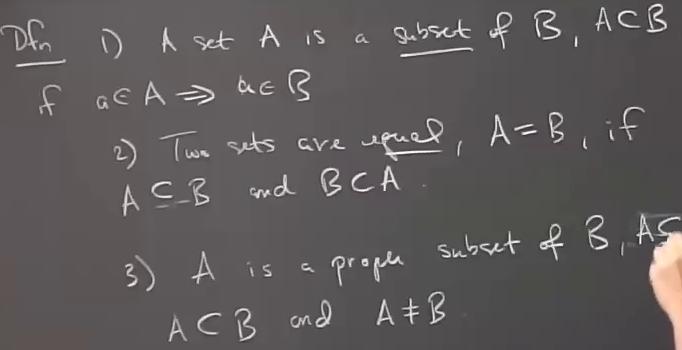 Dfn 1) A set A is a subset of B, A⊂B
if a∈A ⇒ a∈B
2) Two sets are equal, A=B, if
A⊂B and B⊂A.
3) A is a proper subset of B, A⊊
A⊂B and A≠B